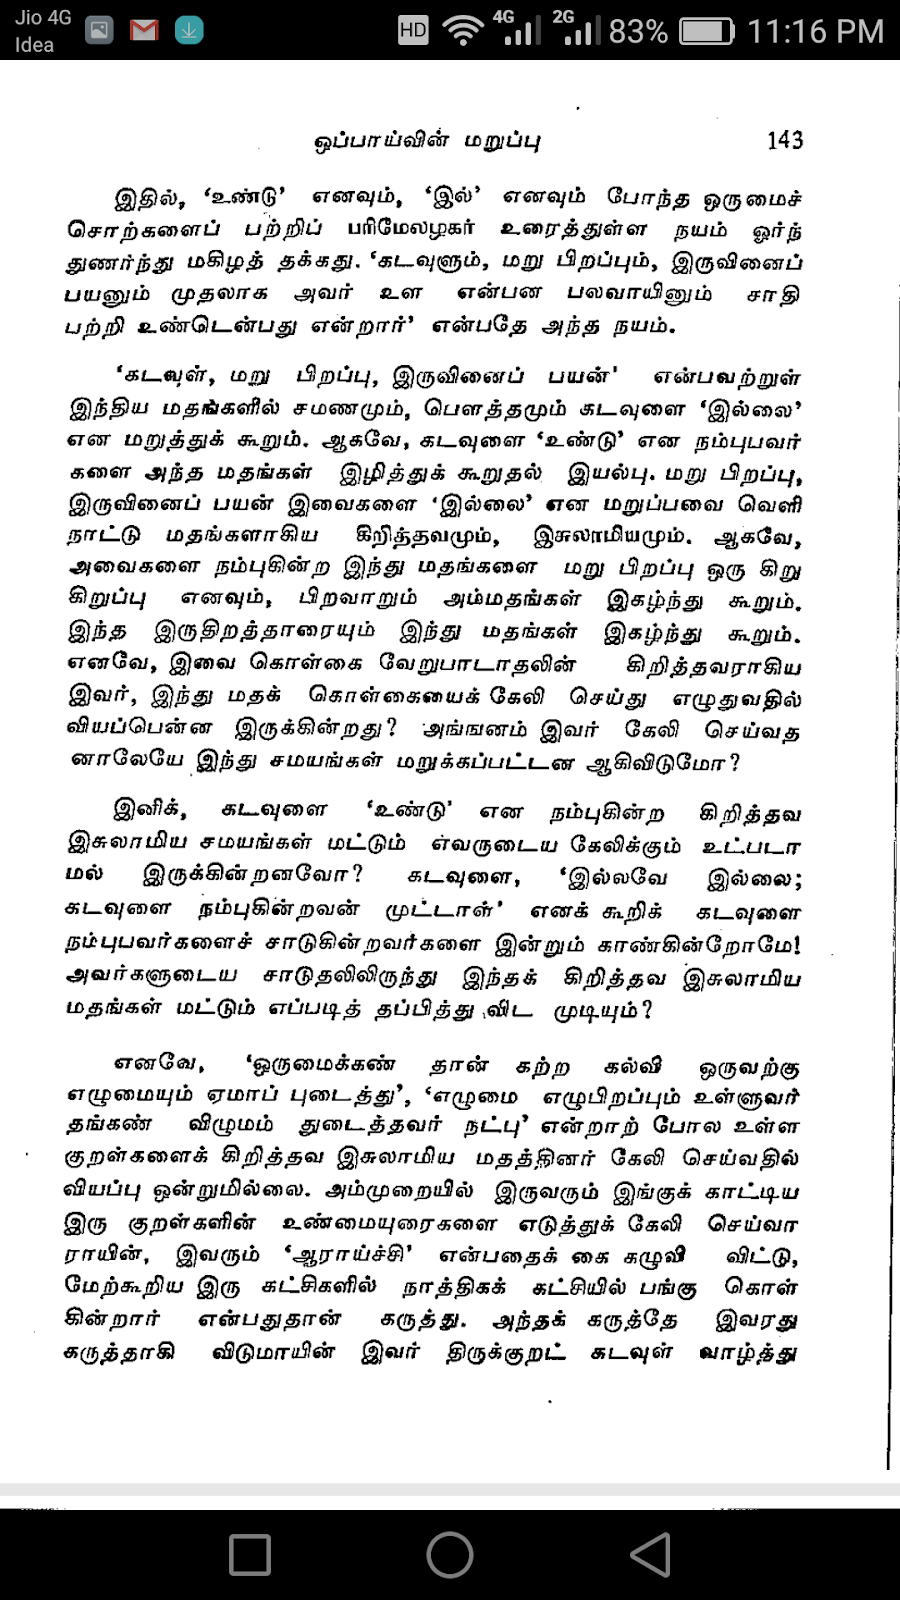 Jio 4G
Idea
HD 4G 2G 83% 11:16 PM
ஒப்பாய்வின் மறுப்பு 143
இதில், ‘உண்டு’ எனவும், ‘இல்’ எனவும் போந்த ஒருமைச்
சொற்களைப் பற்றிப் பரிமேலழகர் உரைத்துள்ள நயம் ஓர்ந்
துணர்ந்து மகிழத் தக்கது. ‘கடவுளும், மறு பிறப்பும், இருவினைப்
பயனும் முதலாக அவர் உள என்பன பலவாயினும் சாதி
பற்றி உண்டென்பது என்றார்’ என்பதே அந்த நயம்.
‘கடவுள், மறு பிறப்பு, இருவினைப் பயன்’ என்பவற்றுள்
இந்திய மதங்களில் சமணமும், பௌத்தமும் கடவுளை ‘இல்லை’
என மறுத்துக் கூறும். ஆகவே, கடவுளை ‘உண்டு’ என நம்புபவர்
களை அந்த மதங்கள் இழித்துக் கூறுதல் இயல்பு. மறு பிறப்பு,
இருவினைப் பயன் இவைகளை ‘இல்லை’ என மறுப்பவை வெளி
நாட்டு மதங்களாகிய கிறித்தவமும், இசுலாமியமும். ஆகவே,
அவைகளை நம்புகின்ற இந்து மதங்களை மறு பிறப்பு ஒரு கிறு
கிறுப்பு எனவும், பிறவாறும் அம்மதங்கள் இகழ்ந்து கூறும்.
இந்த இருதிறத்தாரையும் இந்து மதங்கள் இகழ்ந்து கூறும்.
எனவே, இவை கொள்கை வேறுபாடாதலின் கிறித்தவராகிய
இவர், இந்து மதக் கொள்கையைக் கேலி செய்து எழுதுவதில்
வியப்பென்ன இருக்கின்றது? அங்ஙனம் இவர் கேலி செய்வத
னாலேயே இந்து சமயங்கள் மறுக்கப்பட்டன ஆகிவிடுமோ?
இனிக், கடவுளை ‘உண்டு’ என நம்புகின்ற கிறித்தவ
இசுலாமிய சமயங்கள் மட்டும் எவருடைய கேலிக்கும் உட்படா
மல் இருக்கின்றனவோ? கடவுளை, ‘இல்லவே இல்லை;
கடவுளை நம்புகின்றவன் முட்டாள்’ எனக் கூறிக் கடவுளை
நம்புபவர்களைச் சாடுகின்றவர்களை இன்றும் காண்கின்றோமே!
அவர்களுடைய சாடுதலிலிருந்து இந்தக் கிறித்தவ இசுலாமிய
மதங்கள் மட்டும் எப்படித் தப்பித்து விட முடியும்?
எனவே, ‘ஒருமைக்கண் தான் கற்ற கல்வி ஒருவற்கு
எழுமையும் ஏமாப் புடைத்து’, ‘எழுமை எழுபிறப்பும் உள்ளுவர்
தங்கண் விழுமம் துடைத்தவர் நட்பு’ என்றாற் போல உள்ள
குறள்களைக் கிறித்தவ இசுலாமிய மதத்தினர் கேலி செய்வதில்
வியப்பு ஒன்றுமில்லை. அம்முறையில் இருவரும் இங்குக் காட்டிய
இரு குறள்களின் உண்மையுரைகளை எடுத்துக் கேலி செய்வா
ராயின், இவரும் ‘ஆராய்ச்சி’ என்பதைக் கை கழுவி விட்டு,
மேற்கூறிய இரு கட்சிகளில் நாத்திகக் கட்சியில் பங்கு கொள்
கின்றார் என்பதுதான் கருத்து. அந்தக் கருத்தே இவரது
கருத்தாகி விடுமாயின் இவர் திருக்குறட் கடவுள் வாழ்த்து